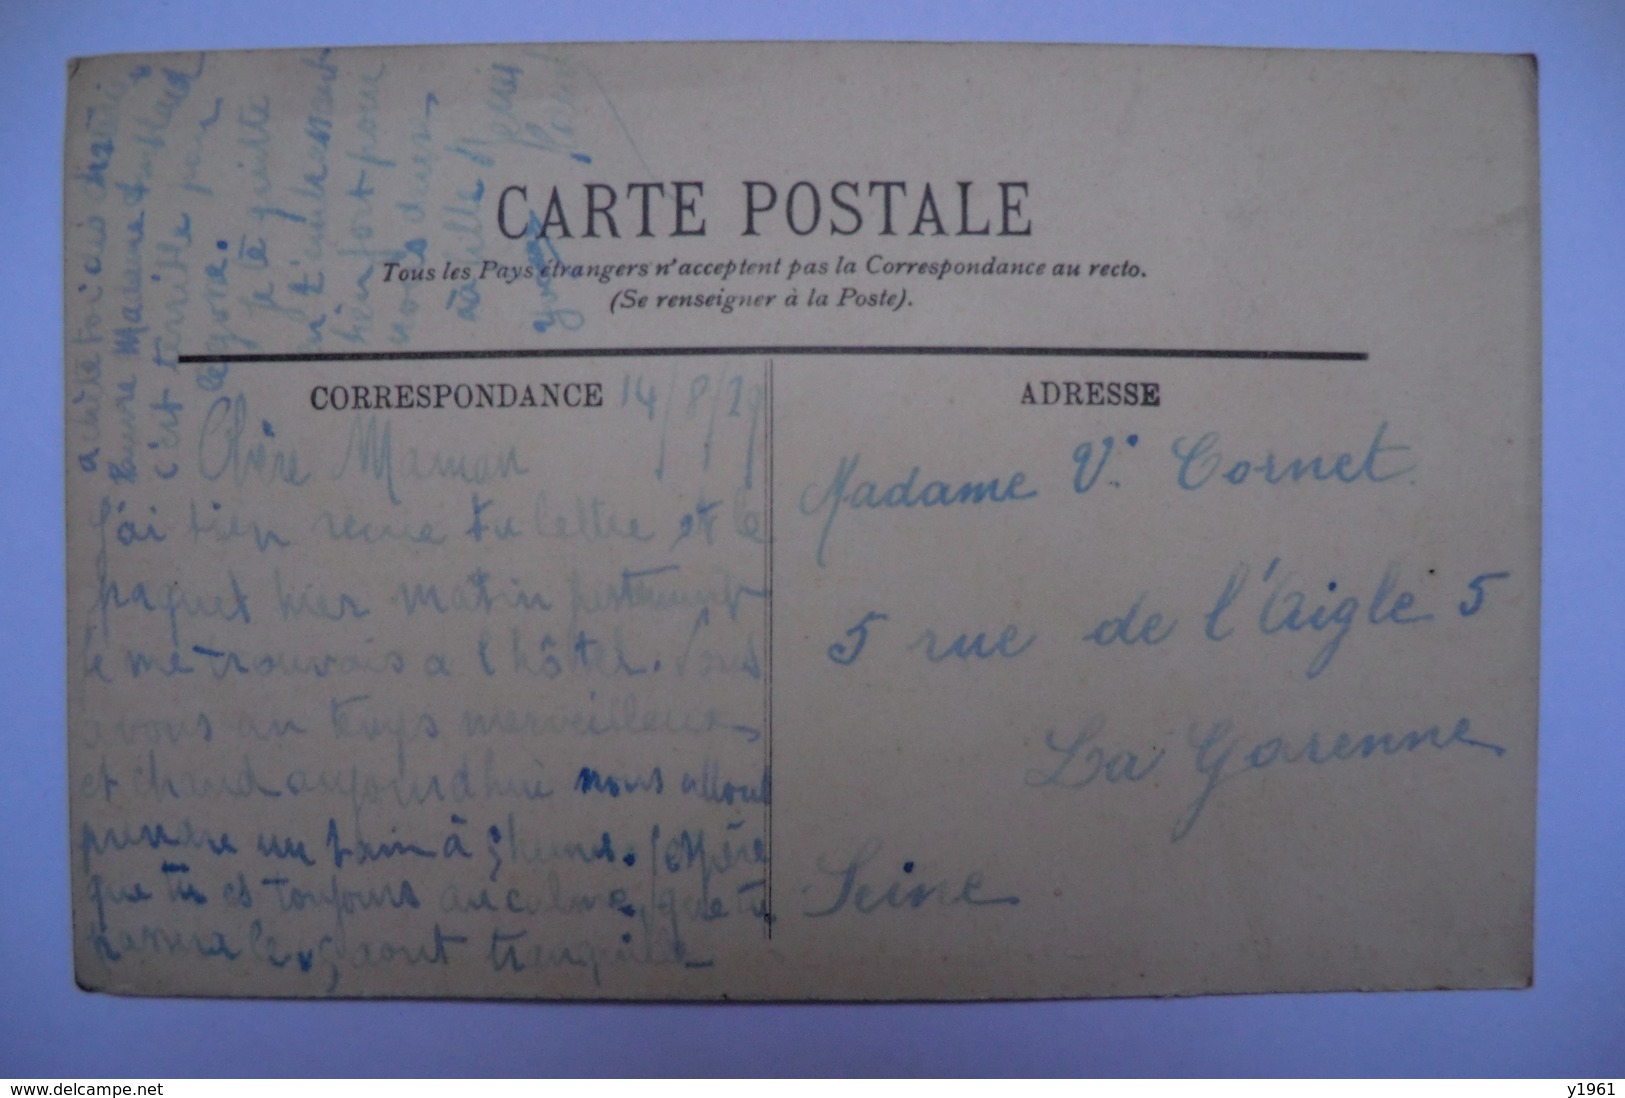 CARTE POSTALE
Tous les Pays étrangers n'acceptent pas la Correspondance au recto.
(Se renseigner à la Poste).
CORRESPONDANCE
14/8/19
Chère Maman
J'ai bien reçue ta lettre et le
paquet hier matin justement
je me trouvais a l'hôtel. Nous
avons un temps merveilleux
et chaud aujourd'hui nous allons
prendre un bain à
que tu es toujours au calme, que tu
passera le 15 aout tranquille
c'est terrible pour
le gone.
Je te quitte
en t'embrassant
bien fort pour
nous deux
ta fille
Yvonne
ADRESSE
Madame Ve Cornet
5 rue de l'Aigle 5
La Garenne
Seine
www.delcampe.net
y1961